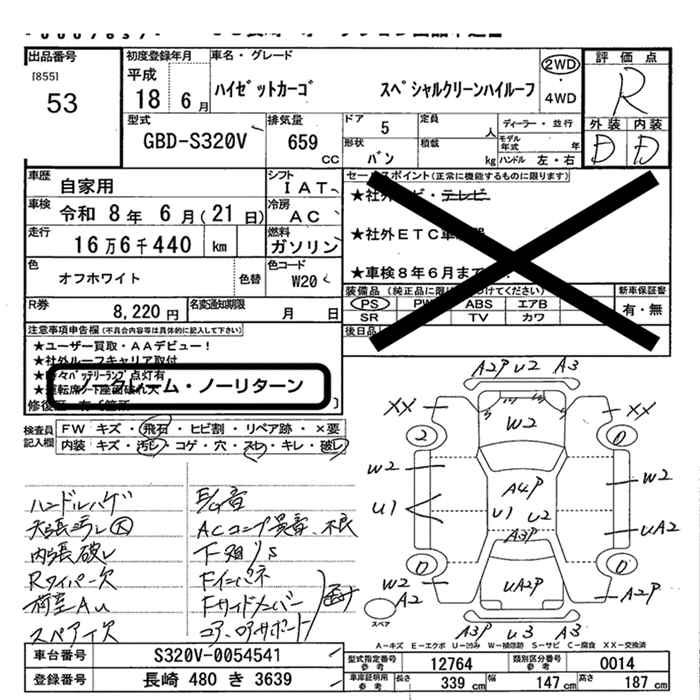 出品番号
[855]
53
初度登録年月
平成
18 6月
車名・グレード
ハイゼットカーゴ スペシャルクリーンハイルーフ
2WD
・
4WD
評価点
R
外装 内装
D D
型式
GBD-S320V
排気量
659 CC
ドア 5
定員 人
形状 バン
積載 kg
ディーラー・並行
モデル年式 年
ハンドル 左・右
車歴
自家用
シフト
IAT
車検
令和 8年 6月(21日)
冷房
AC
走行
16万6千440 km
燃料
ガソリン
色
オフホワイト
色替
色コード
W20
R券
8,220円
名変通知期限
月 日
セールスポイント(正常に機能するものに限ります)
★社外 ビ・テレビ
★社外ETC車
★車検8年6月まで
装備品(純正品に限 けてください)
PS PW ABS エアB
SR TV カワ
新車保証書
有・無
後日品
注意事項申告欄(不具合内容等は具体的に記入して下さい)
★ユーザー買取・AAデビュー!
★社外ルーフキャリア取付
バッテリーランプ点灯有
ノークレーム・ノーリターン
検査員
記入欄
FW キズ・飛石・ヒビ割・リペア跡・×要
内装 キズ・汚レ・コゲ・穴・スレ・キレ・破レ
ハンドルハゲ
天張ヨゴレ大
内張破レ
Rワイパー欠
荷室AU
スペア欠
E/g音
ACコンプ異音、不良
下廻りS
Fインパネ
Fサイドメンバー
コア、ロアサポート
A2P U2 A3
XX XX
W2
2
W2 W2
A4P
U1 U1 U2
A3P
UA2
W2
UA2P
A2
A2P
A3P U3 A3
スペア
A-キズ E-エクボ U-凹ミ W-補修跡 S-サビ C-腐食 XX-交換済
車台番号
S320V-0054541
登録番号
長崎 480 き 3639
型式指定番号 参考
12764
類別区分番号 参考
0014
車庫証明用 参考
長さ 339 cm 幅 147 cm 高さ 187 cm